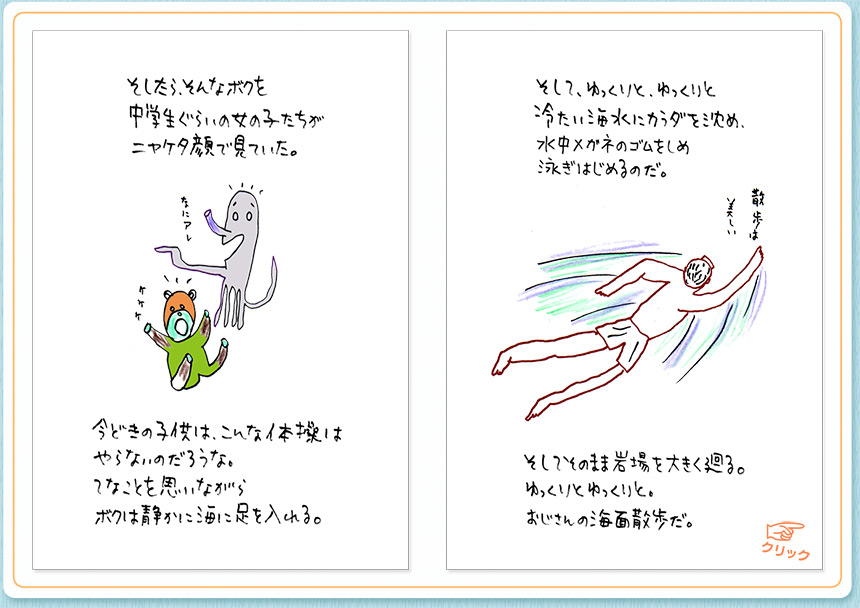 そしたら、そんなボクを
中学生ぐらいの女の子たちが
ニヤケタ顔で見ていた。
なにアレ
ケケケ
今どきの子供は、こんな体操は
やらないのだろうな。
てなことを思いながら
ボクは静かに海に足を入れる。
そして、ゆっくりと、ゆっくりと
冷たい海水にカラダを沈め、
水中メガネのゴムをしめ
泳ぎはじめるのだ。
散歩は
美しい
そしてそのまま岩場を大きく廻る。
ゆっくりとゆっくりと。
おじさんの海面散歩だ。
クリック